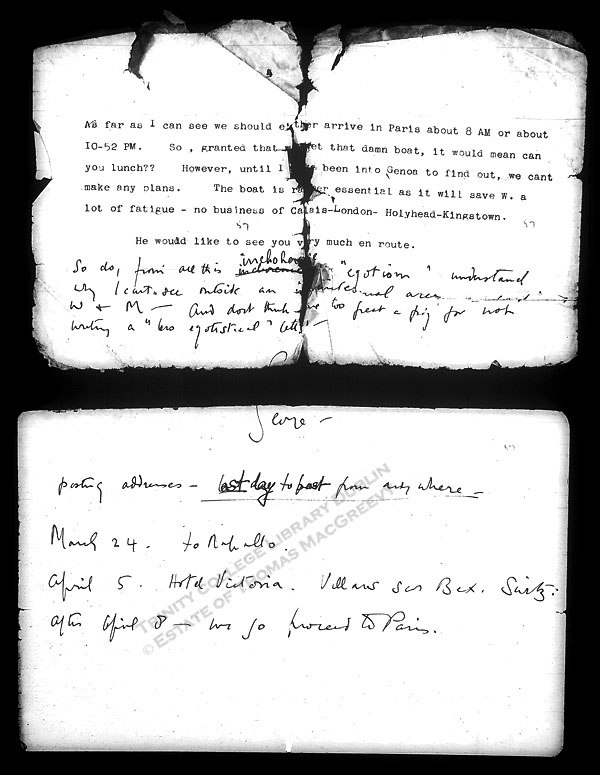 5
As far as I can see we should either arrive in Paris about 8 AM or about
IO-52 PM. So , granted that get that damn boat, it would mean can
you lunch?? However, until I been into Genoa to find out, we cant
make any plans. The boat is rather essential as it will save W. a
lot of fatigue - no business of Calais-London- Holyhead-Kingstown.
57 57
He would like to see you very much en route.
So do, from all this incoherence "egotism" understand
why I cant see outside an infinitesimal area
W + M — And dont think me too great a pig for not
writing a "less egotistical" letter —
George —
posting addresses - last day to post from any where -
March 24. to Rapallo.
April 5. Hotel Victoria. Villars sur Bex. Switz:
after April 8 — we go proceed to Paris.
TRINITY COLLEGE LIBRARY DUBLIN
© ESTATE OF THOMAS MACGREEVY